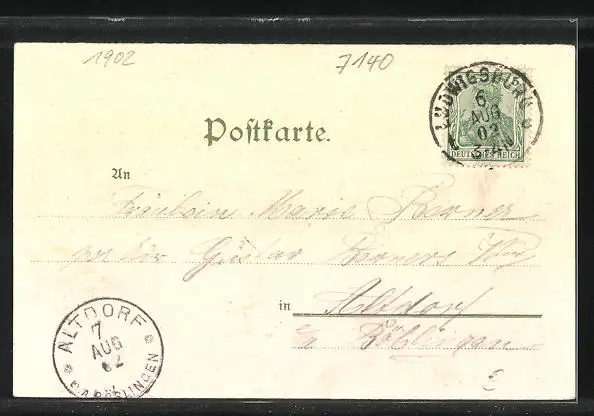 1902
7140
LUDWIGSBURG
6
AUG
02
3-4N
DEUTSCHES REICH
Postkarte.
An
Fräulein Marie Berner
Gustav Berners Wwe
in Altdorf
Böblingen
ALTDORF
7
AUG
02
O.A. BÖBLINGEN